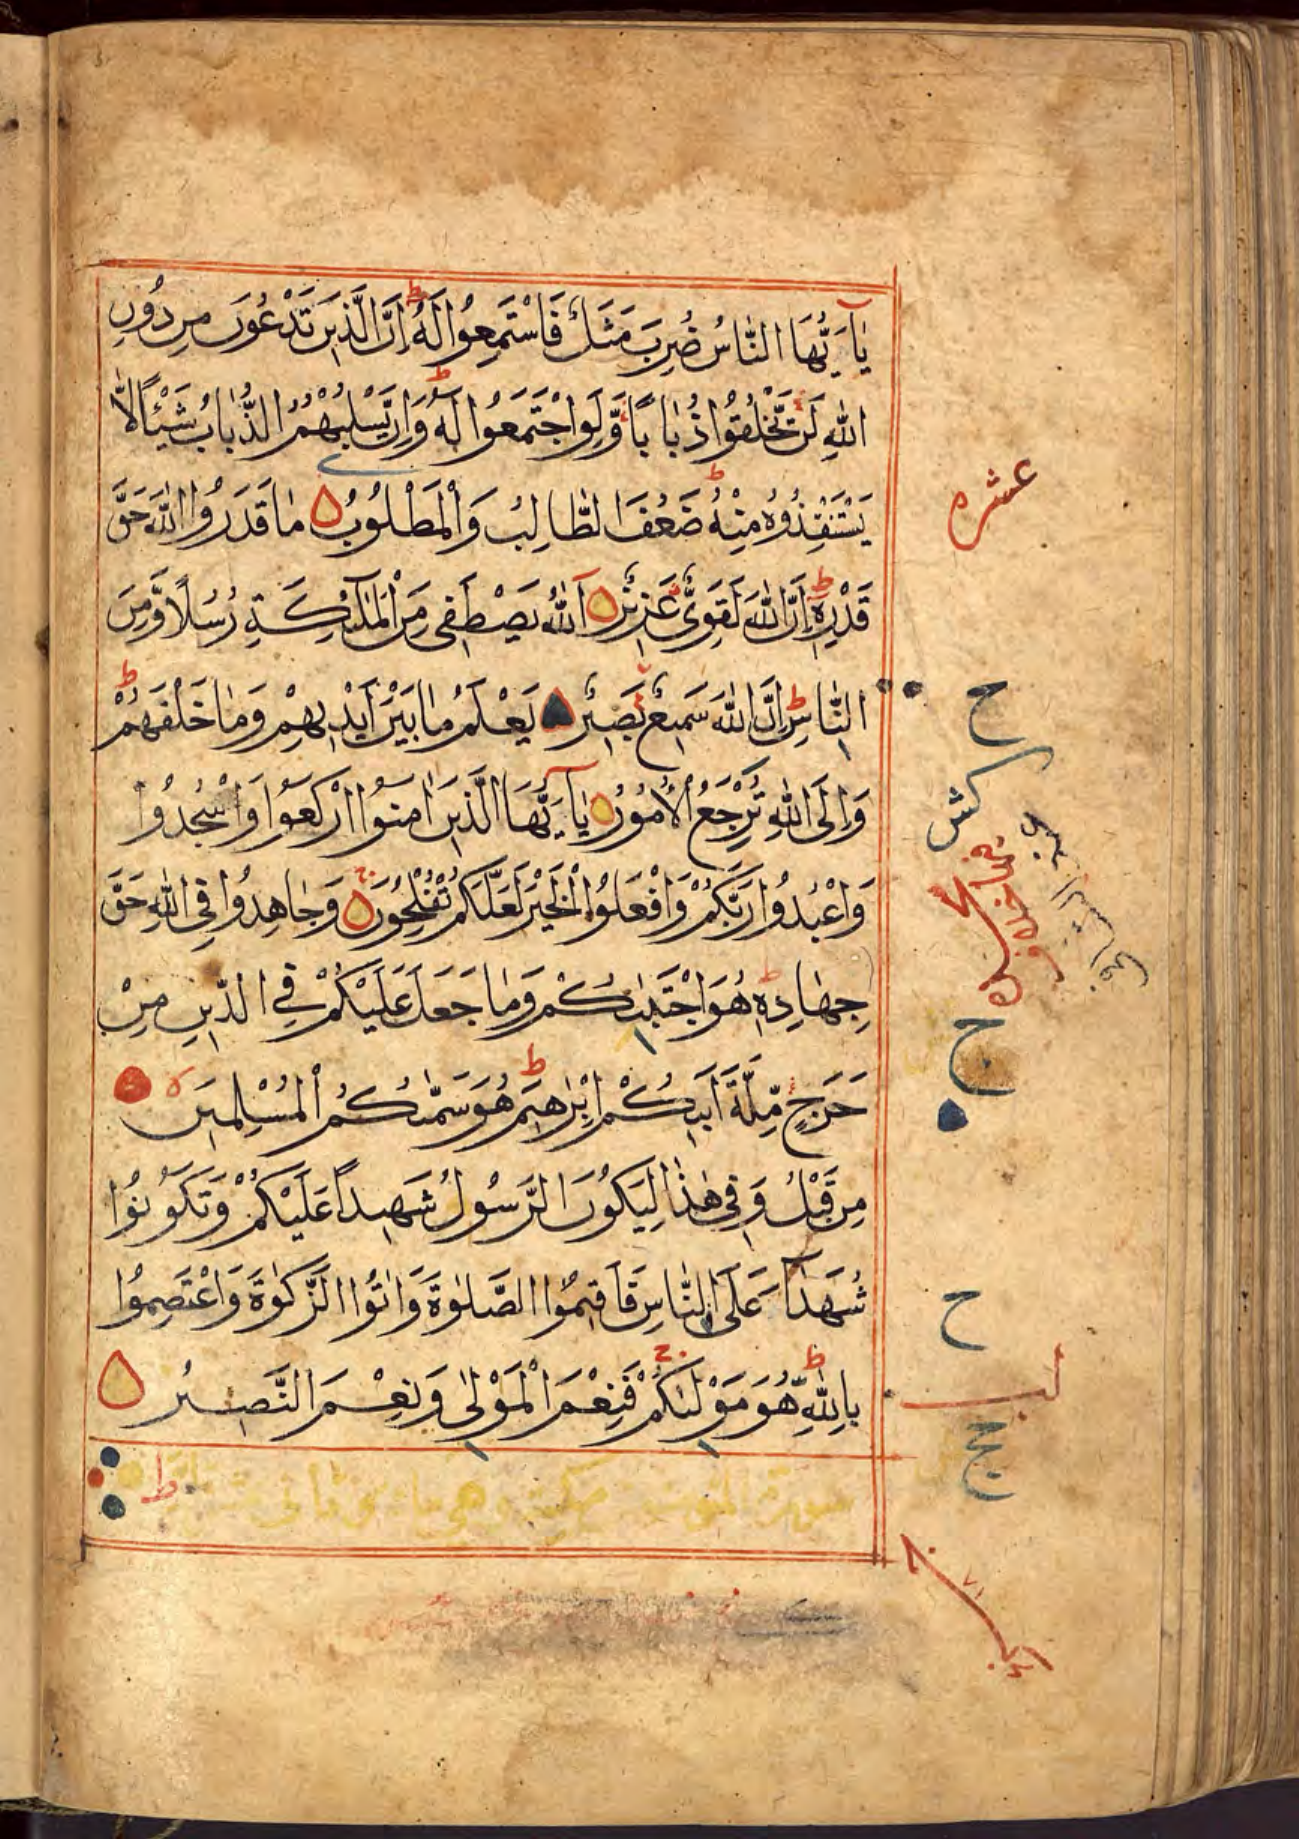 يَاأَيُّهَا النَّاسُ ضُرِبَ مَثَلٌ فَاسْتَمِعُوا لَهُ ط إِنَّ الَّذِينَ تَدْعُونَ مِن دُونِ
اللهِ لَن تَخْلُقُوا ذُبَابًا وَّلَوِ اجْتَمَعُوا لَهُ ط وَإِن يَّسْلُبْهُمُ الذُّبَابُ شَيْئًا لَّا
يَسْتَنْقِذُوهُ مِنْهُ ط ضَعُفَ الطَّالِبُ وَالْمَطْلُوبُ مَا قَدَرُوا اللهَ حَقَّ
قَدْرِهِ ط إِنَّ اللهَ لَقَوِيٌّ عَزِيزٌ اَللهُ يَصْطَفِي مِنَ الْمَلٰئِكَةِ رُسُلًا وَّمِنَ
النَّاسِ ط إِنَّ اللهَ سَمِيعٌ بَصِيرٌ يَعْلَمُ مَا بَيْنَ أَيْدِيهِمْ وَمَا خَلْفَهُمْ ط
وَإِلَى اللهِ تُرْجَعُ الْأُمُورُ يَاأَيُّهَا الَّذِينَ اٰمَنُوا ارْكَعُوا وَاسْجُدُوا
وَاعْبُدُوا رَبَّكُمْ وَافْعَلُوا الْخَيْرَ لَعَلَّكُمْ تُفْلِحُونَ وَجَاهِدُوا فِي اللهِ حَقَّ
جِهَادِهِ ط هُوَ اجْتَبٰىكُمْ وَمَا جَعَلَ عَلَيْكُمْ فِي الدِّينِ مِنْ
حَرَجٍ مِّلَّةَ أَبِيكُمْ إِبْرٰهِيمَ ط هُوَ سَمّٰىكُمُ الْمُسْلِمِينَ ه
مِن قَبْلُ وَفِي هٰذَا لِيَكُونَ الرَّسُولُ شَهِيدًا عَلَيْكُمْ وَتَكُونُوا
شُهَدَآءَ عَلَى النَّاسِ فَأَقِيمُوا الصَّلٰوةَ وَاٰتُوا الزَّكٰوةَ وَاعْتَصِمُوا
بِاللهِ ط هُوَ مَوْلٰىكُمْ فَنِعْمَ الْمَوْلٰى وَنِعْمَ النَّصِيرُ
ط
عشره
ح
ح
لب